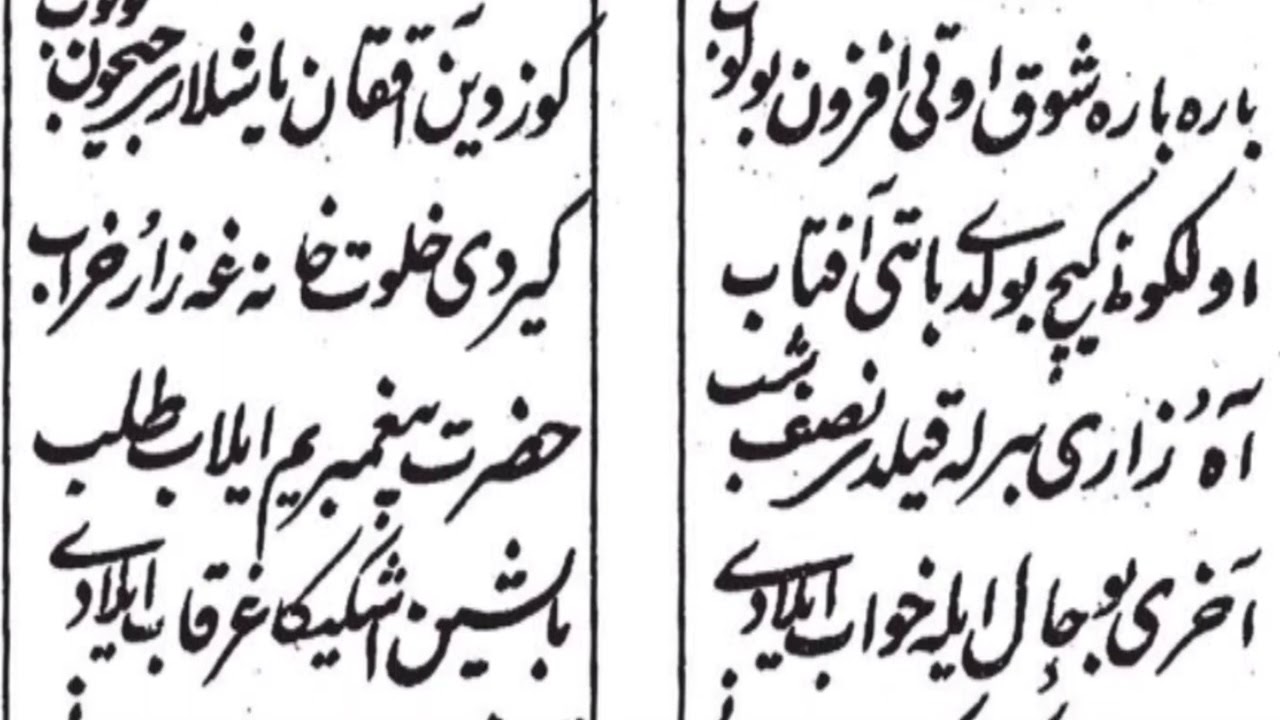 باره باره شوق اوتی افزون بولوب
کوزدین آققان یاشلار جیحون بولوب
اول کونی کیچ بولدے باتتی آفتاب
کیردی خلوت خانه غه زار خراب
آه زاری بیرله قیلدی نصف شب
حضرت پیغمبریم ایلاب طلب
آخری بو حال ایله خواب ایلادے
باشین اشکیکا غرقاب ایلادے